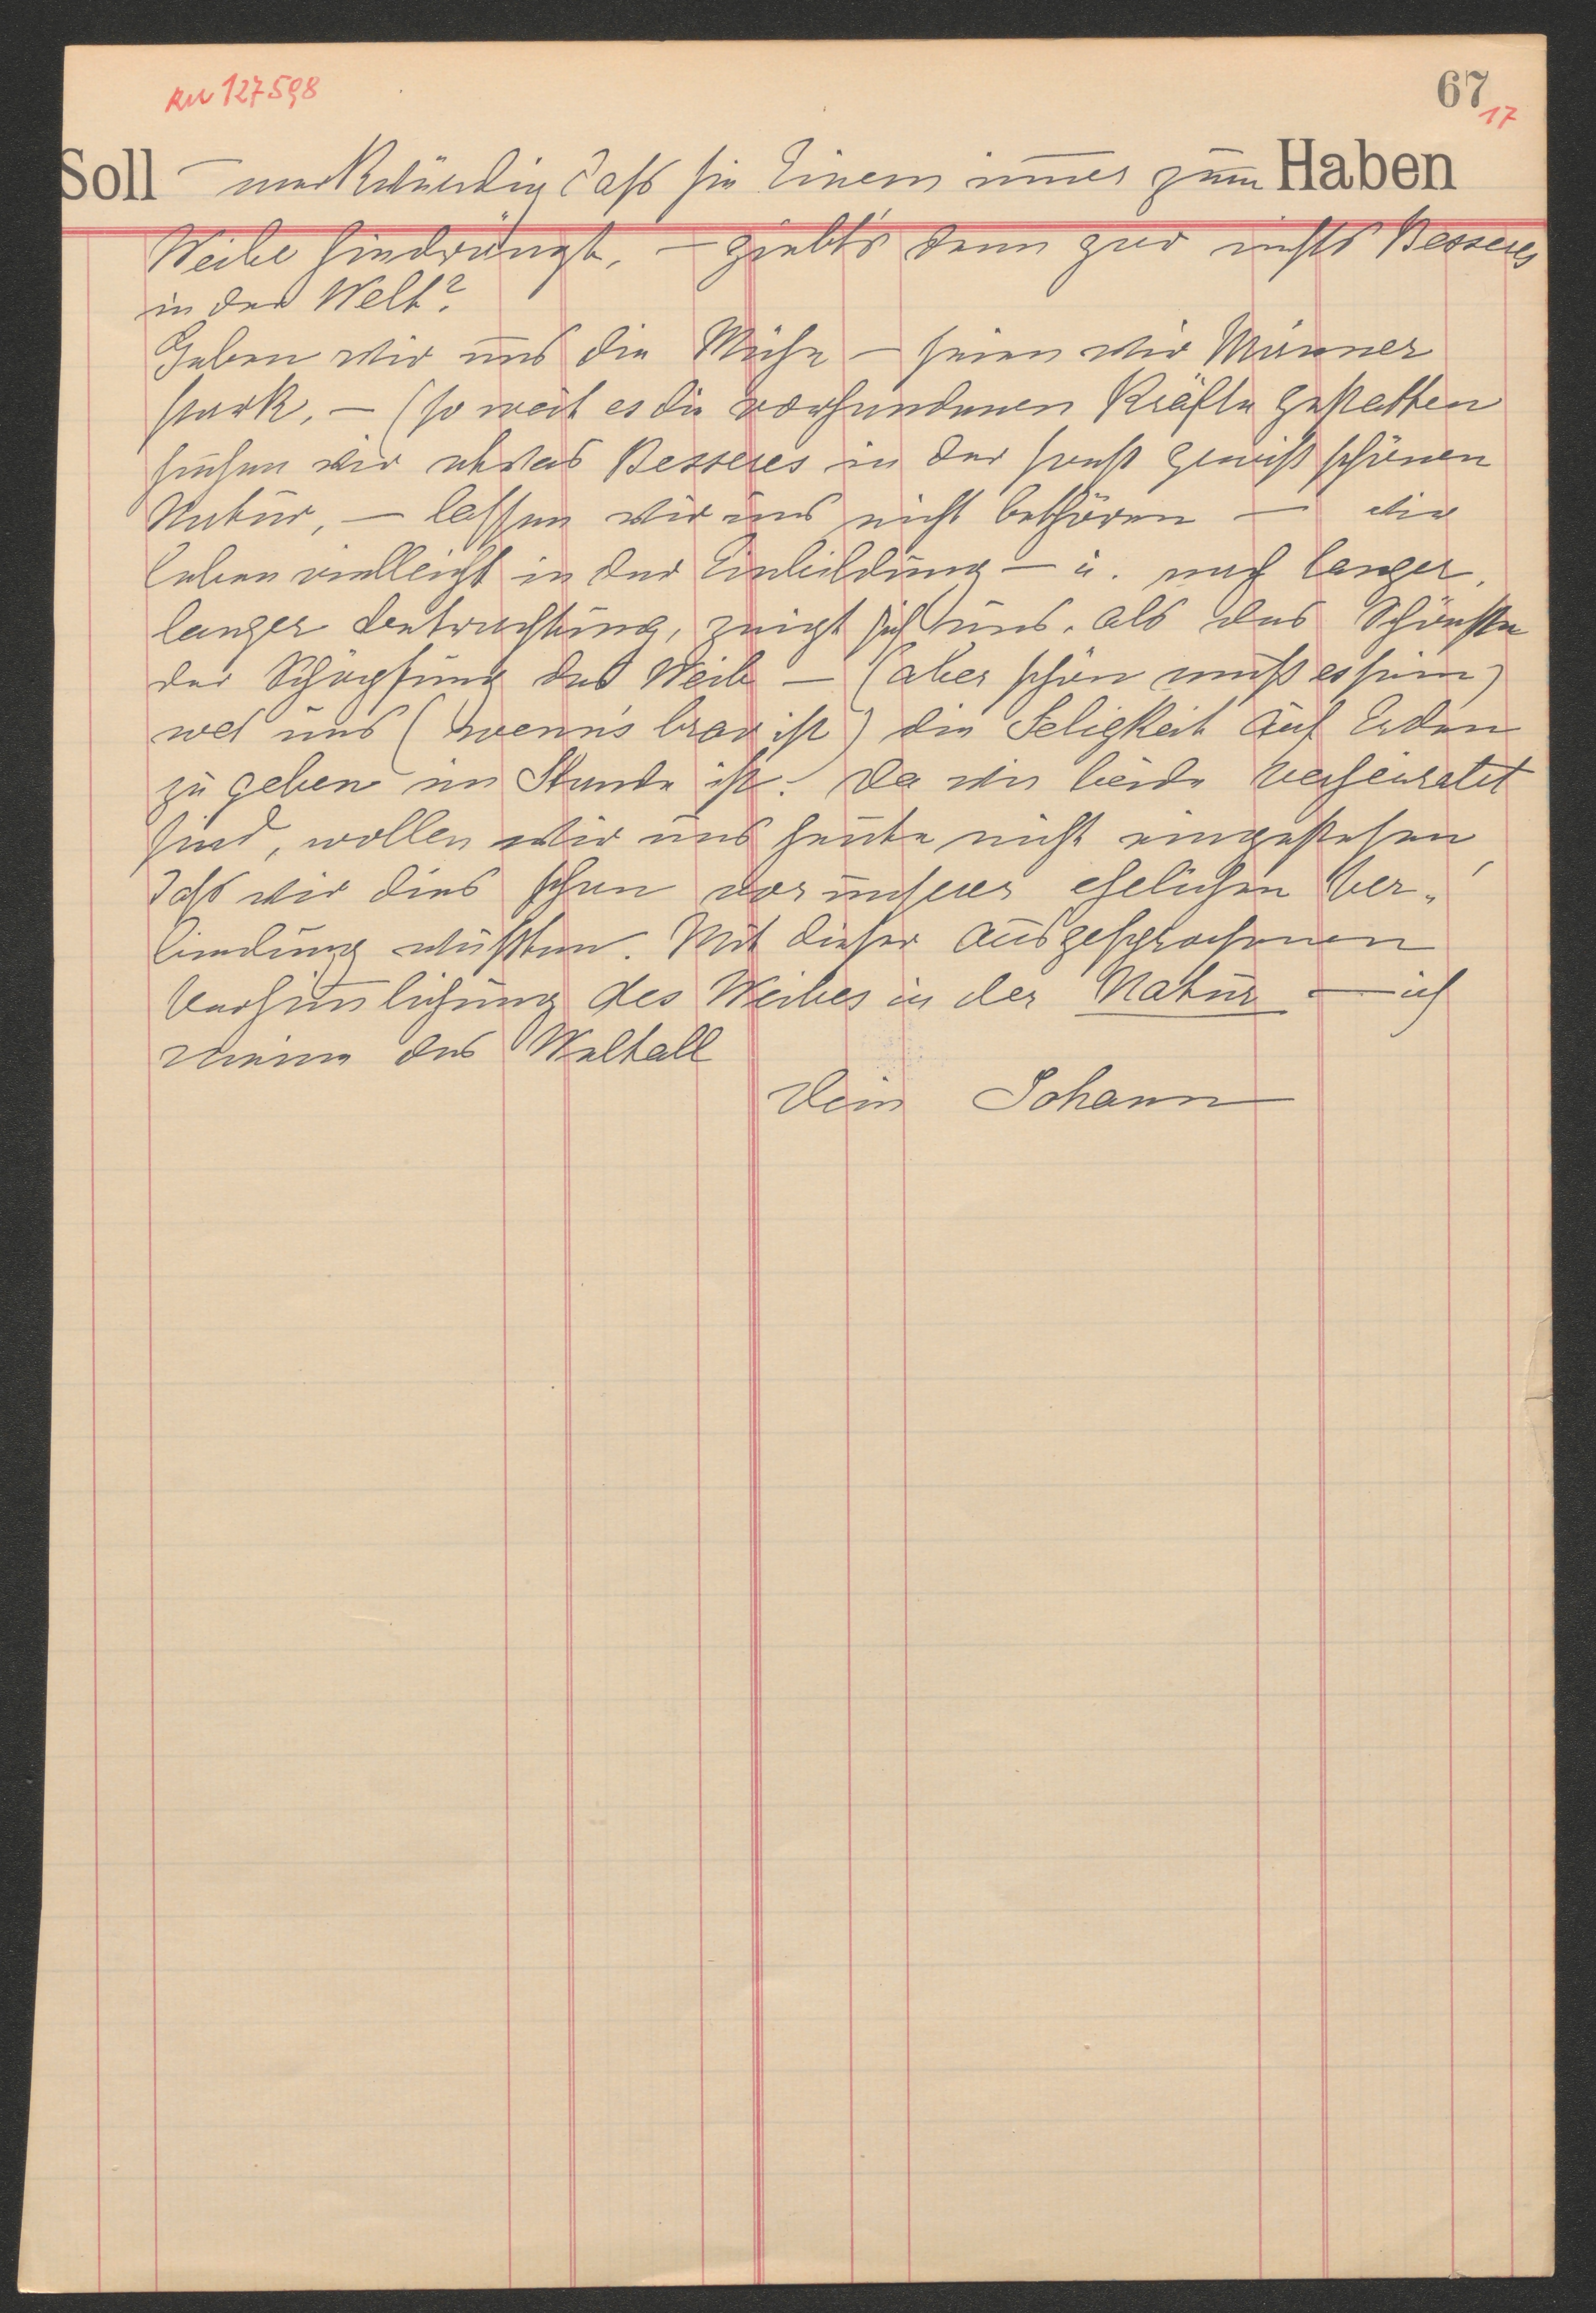 RU 127598
67
17
Soll Haben
– merkwürdig daß sie Einem im̅er zum
Weibe hindrängt, – giebt's denn gar nichts Besseres
in der Welt?
Geben wir uns die Mühe – seien wir Männer
stark, – (so weit es die vorhandenen Kräfte gestatten
suchen wir etwas Besseres in der sonst gewiß schönen
Natur, – lassen wir uns nicht bethören – wir
leben vielleicht in der Einbildung – u. nach langer,
langer Betrachtung, zeigt sich uns, als das Schönste
der Schöpfung das Weib – (aber schön muß es sein)
was uns (wenn's brav ist) die Seligkeit auf Erden
zu geben im Stande ist. Da wir beide verheiratet
sind, wollen wir uns heute nicht eingestehen,
daß wir dies schon vor unserer ehelichen Ver-
bindung wußten. Mit dieser ausgesprochenen
des Weibes in der Natur – ich
meine das Weltall
Dein Johann